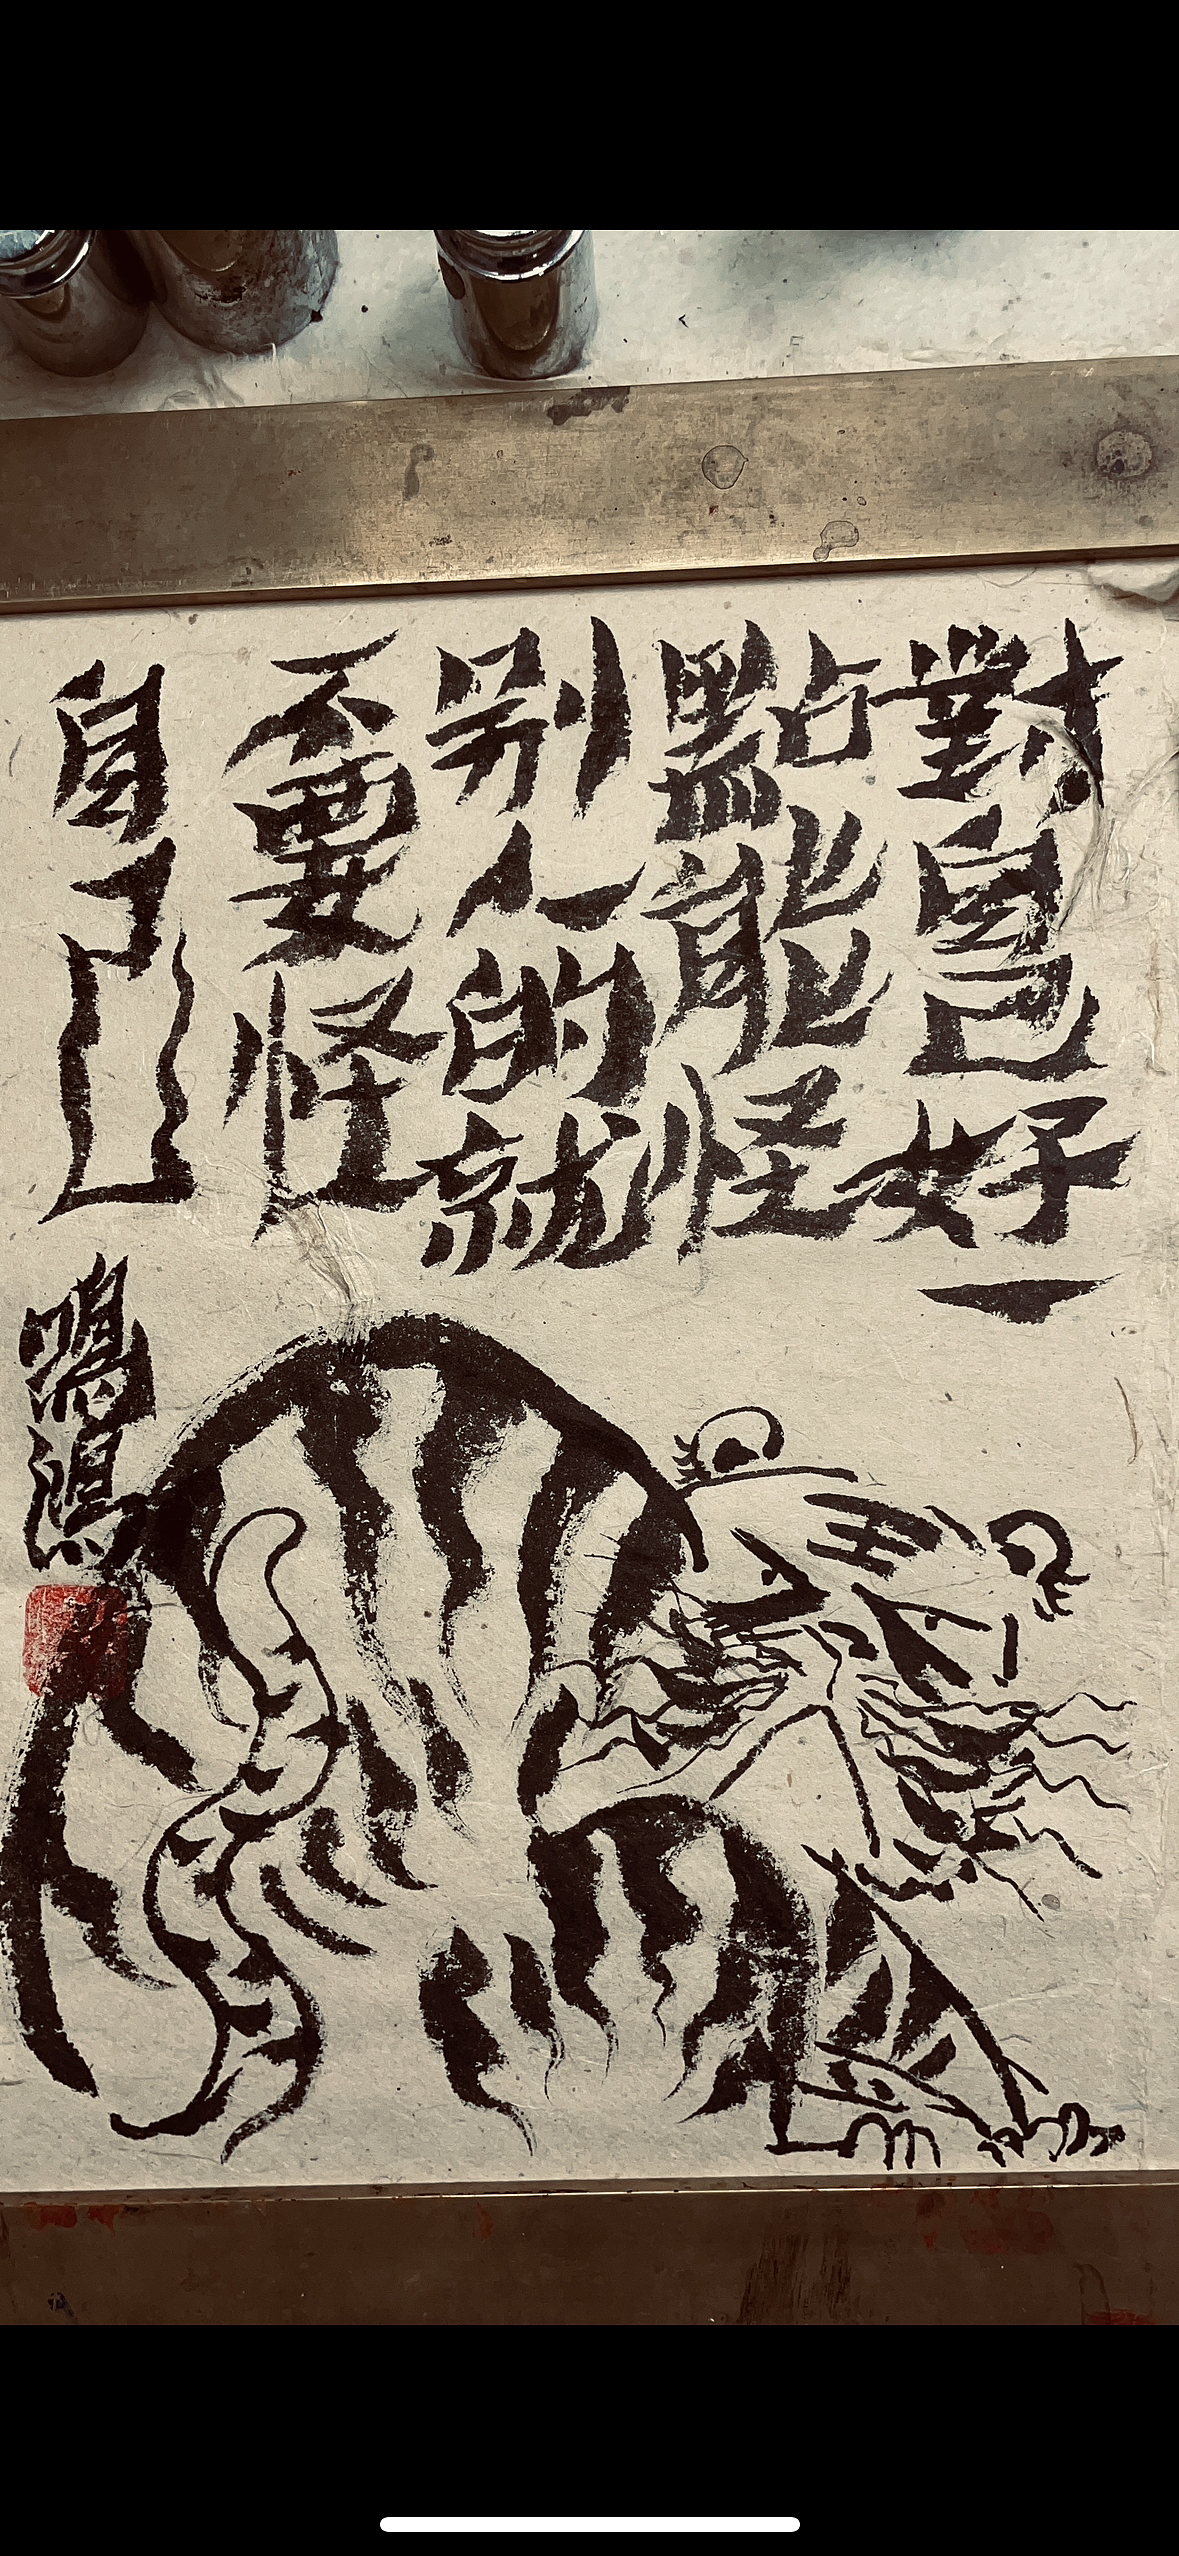 對自己好一
點能怪
別人的就
不要怪
自己